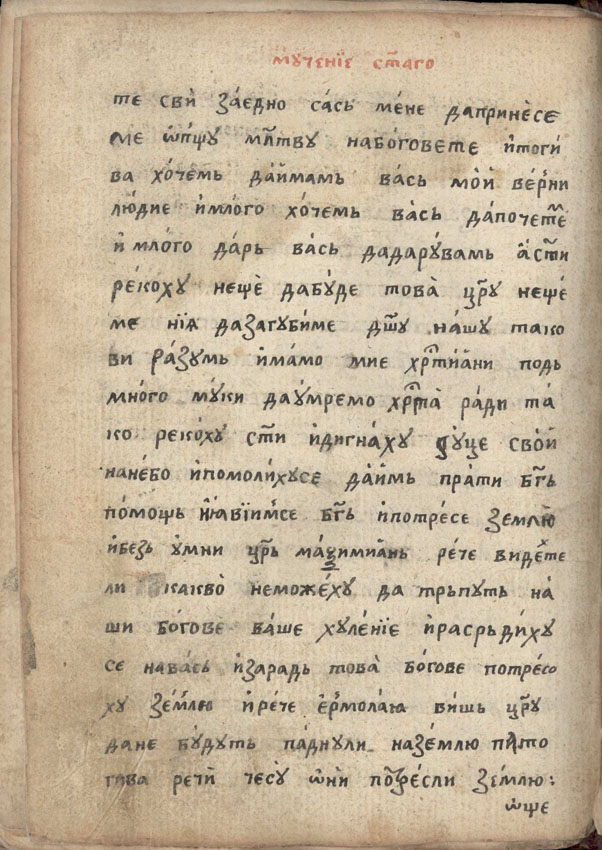 мꙋченїе ст҃аго
те свѝ заедно сась мене да принѐсе
ме ѡ҆пщꙋ мл҃твꙋ на боговете и҆ тогѝ
ва хо́чемь да и҆мамь вась мой ве́рни
лю́дие и҆ мло́го хо́чемь ва̀сь да почете
и҆ мло́го да́рь вась да дарꙋ́вамь а҆ ст҃и
реко́хꙋ нещѐ да бꙋ́де това̀ цр҃ꙋ неще́
ме нїꙗ да загꙋ́биме дш҃ꙋ на́шꙋ тако
ви ра́зꙋмь и҆ма́мо мие хрⷭ҇тиꙗ́ни подь
мно́го мꙋ́ки да ꙋ҆мремо хрⷭ҇та̀ ра́ди та́
ко реко́хꙋ ст҃и и҆ дигна́хꙋ рꙋ́це свой
на не́бо и҆ помоли́хꙋсе да и҆мь пра́ти бг҃ь
по́мощь и҆ ꙗ҆вѝ и҆мсе бг҃ь и҆ потре́се землю̀
и҆ безь ꙋ҆мни цр҃ь маѯимиа́нь ре́че виде́те
ли какво̀ не мо́жехꙋ да трьпꙋть на́
ши бо́гове ва́ше хꙋле́нїе и҆ расрьди́хꙋ
се на ва́сь и҆ зарадь това̀ бо́гове потресо
хꙋ зе́млю и҆ ре́че е҆рмола́ꙗ ви́шь цр҃ꙋ
да не бꙋ́дꙋть па́днꙋли на зе́млю
това речѝ чесꙋ̀ ѡ҆нѝ потре́сли зе́млю:
ѡ҆ще